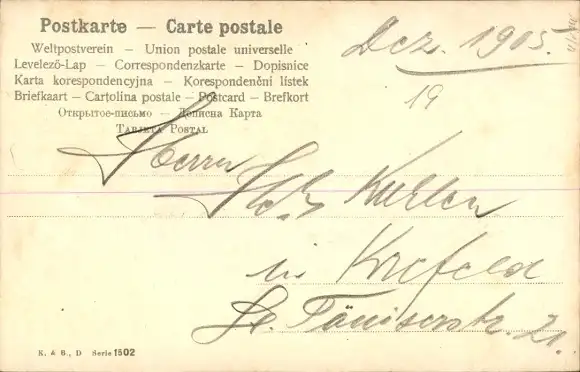 Postkarte — Carte postale
Weltpostverein — Union postale universelle
Levelező-Lap — Correspondenzkarte — Dopisnice
Karta korespondencyjna — Korespondenční lístek
Briefkaart — Cartolina postale — Postcard — Brefkort
Открытое-письмо — Дописна Карта
Tarjeta Postal
Dez. 1905.
19
Herrn
in Krefeld
St. Töniserstr. 21.
K. & B., D Serie 1502